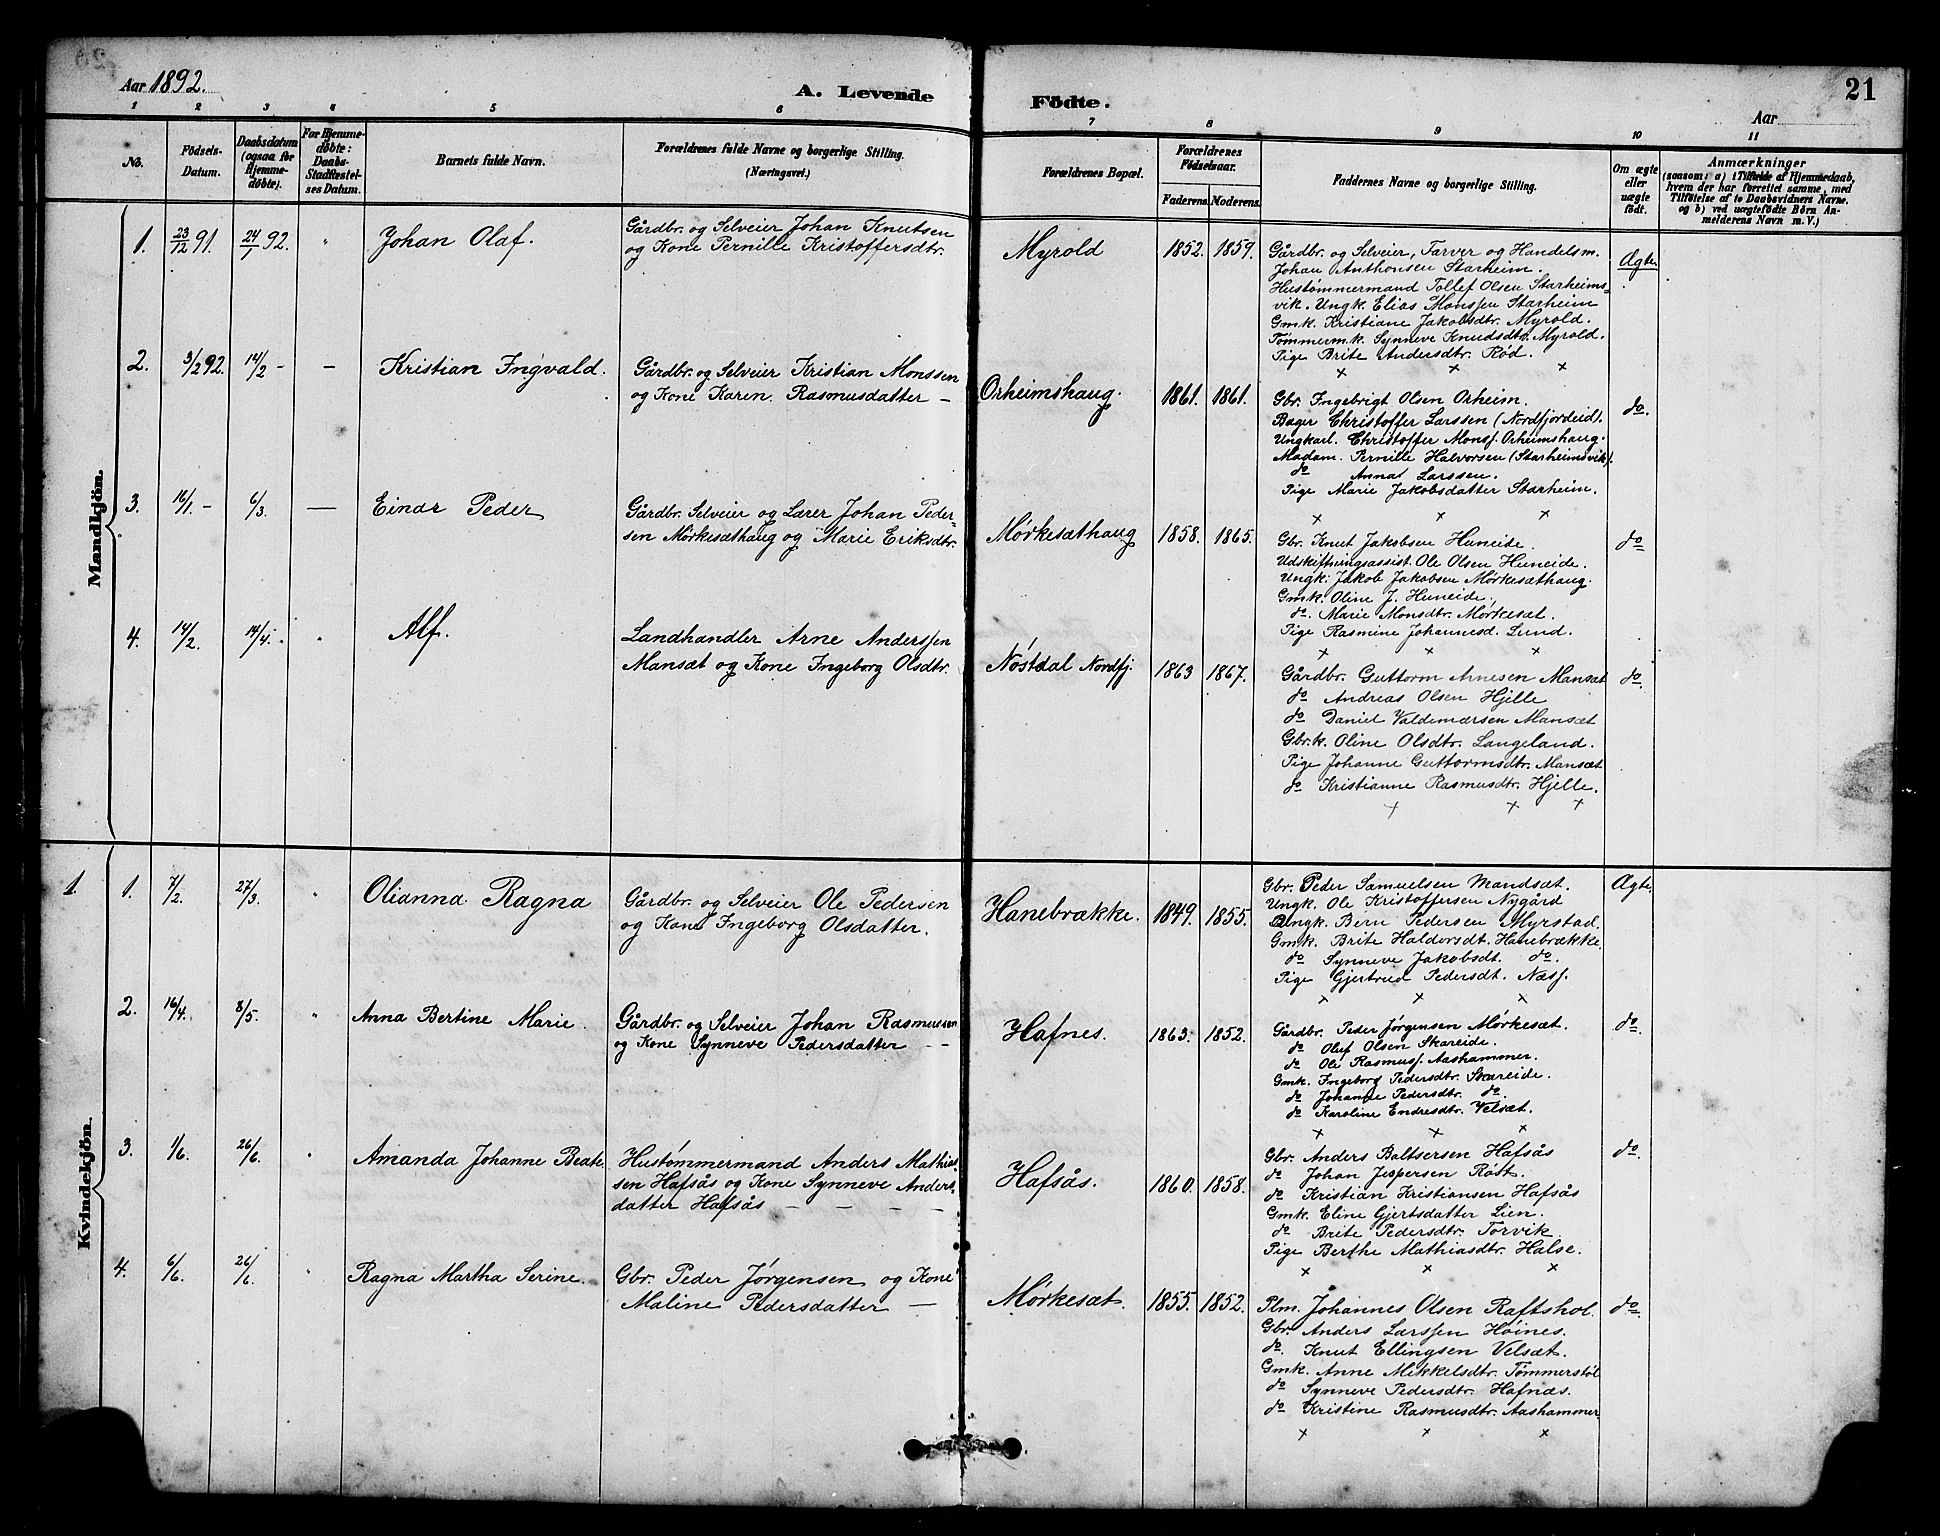 Aar 1892.
A. Levende Födte.
21
Aar
1 2 3 4 5 6 7 8 9 10 11
No.
Födsels-
Datum.
Daabsdatum
(ogsaa for
Hjemme-
döbte).
For Hjemme-
döbte:
Daabs-
Stadfæstel-
ses Datum.
Barnets fulde Navn.
Forældrenes fulde Navne og borgerlige Stilling.
(Næringsvei.)
Forældrenes Bopæl.
Forældrenes
Födselsaar.
Faderens. Moderens.
Faddernes Navne og borgerlige Stilling.
Om ægte
eller
uægte
födt.
Anmærkninger
(saasom: a) i Tilfælde af Hjemmedaab,
hvem der har forrettet samme, med
Tilföielse af to Daabsvidners Navne.
og b) ved uægtefödte Börn An-
melderens Navn m. V.)
Mandkjön.
1. 23/12 91. 24/1 92. " Johan Olaf.
Gårdbr. og Selveier Johan Knutsen
og Kone Pernille Kristoffersdtr.
Myrold 1852. 1859.
Gårdbr. og Selveier, Farver og Handelsm.
Johan Anthonsen Starheim.
Hustømmermand Tollef Olsen Starheims-
vik. Ungk. Elias Monssen Starheim
Gmk. Kristiane Jakobsdtr. Myrold.
Tømmermk. Synneve Knudsdtr. Myrold.
Pige Brite Andersdtr. Rød.
x x x
Ægte.
2. 3/2 92. 14/2 - - Kristian Ingvald.
Gårdbr. og Selveier Kristian Monssen
og Kone Karen Rasmusdatter -
Orheimshaug. 1861. 1861.
Gbr. Ingebrigt Olsen Orheim.
Bager Christoffer Larssen (Nordfjordeid).
Ungkarl. Christoffer Monss. Orheimshaug.
Madam. Pernille Halvorsen (Starheimsvik).
do Anna Larssen.
Pige Marie Jakobsdatter Starheim.
x x x
do.
3. 16/1 - 6/3. - Einar Peder
Gårdbr. Selveier og Lærer Johan Peder-
sen Mørkesæthaug og Marie Eriksdtr.
Mørkesæthaug 1858. 1865.
Gbr. Knut Jakobsen Huneide.
Udskiftningsassist. Ole Olsen Huneide.
Ungk. Jakob Jakobsen Mørkesæthaug.
Gmk. Oline J. Huneide.
do. Marie Monsdtr. Mørkesæt.
Pige Rasmine Johannesd. Lund.
x x x
do
4. 14/2. 14/4. " Alf.
Landhandler Arne Anderssen
Mansæt og Kone Ingeborg Olsdtr.
Nøstdal Nordfj. 1863 1867.
Gårdbr. Guttorm Arnesen Mansæt
do Andreas Olsen Hjelle
do Daniel Valdemarsen Mansæt
Gbr.k. Oline Olsdtr. Langeland.
Pige Johanne Guttormsdtr. Mansæt
do Kristianne Rasmusdtr. Hjelle.
x x x
do.
Kvindekjön.
1. 1. 7/2. 27/3. " Olianna Ragna
Gårdbr. og Selveier Ole Pedersen
og Kone Ingeborg Olsdatter.
Hanebrække. 1849. 1855.
Gbr. Peder Samuelsen Mandsæt.
Ungk. Ole Kristoffersen Nygård
Ungk. Bern Pedersen Myrstad.
Gmk. Brite Haldorsdt. Hanebrække.
do Synneve Jakobsdt. do.
Pige Gjertrud Pedersdt. Næss.
x x x
Ægte.
2. 16/4. 8/5. " Anna Bertine Marie.
Gårdbr. og Selveier Johan Rasmusen
og Kone Synneve Pedersdatter - -
Hafnes. 1863. 1852.
Gårdbr. Peder Jørgensen Mørkesæt.
do Oluf Olsen Skareide.
do Ole Rasmuss. Aashammer.
Gmk. Ingeborg Pedersdtr. Skareide.
do Johanne Pedersdtr. do.
do Karoline Endresdtr. Velsæt.
x x x
do
3. 1/6. 26/6. " Amanda Johanne Beate.
Hustømmermand Anders Mathias-
sen Hafsås og Kone Synneve Anders-
datter Hafsås - - - -
Hafsås. 1860. 1858.
Gbr. Anders Baltsersen Hafsås
do Johan Jespersen Røst.
do Kristian Kristiansen Hafsås
Gmk. Eline Gjertsdatter Lien.
do Brite Pedersdtr. Torvik
Pige Berthe Mathiasdtr. Halse.
x x x
do.
4. 6/6. 26/6. " Ragna Martha Serine.
Gbr. Peder Jørgensen og Kone
Maline Pedersdatter -
Mørkesæt. 1855. 1852.
Plm. Johannes Olsen Raftshol.
Gbr. Anders Larssen Høines.
do. Knut Ellingsen Velsæt.
Gmk. Anne Mikkelsdtr. Tømmerstøl
do Synneve Pedersdtr. Hafnæs.
do Kristine Rasmusdtr. Aashammer
x x x
do.